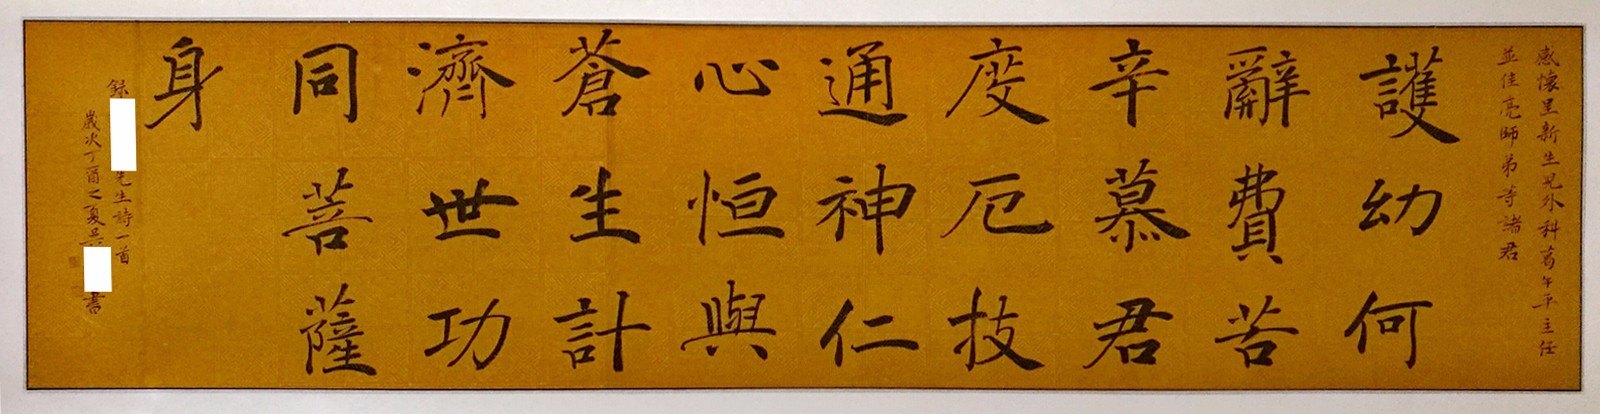 感懷呈新生兒外科葛午平主任
並佳亮師弟等諸君
護幼何
辭費苦
辛慕君
度厄技
通神仁
心恒與
蒼生計
濟世功
同菩薩
身
錄 先生詩一首
歲次丁酉之夏吳 書